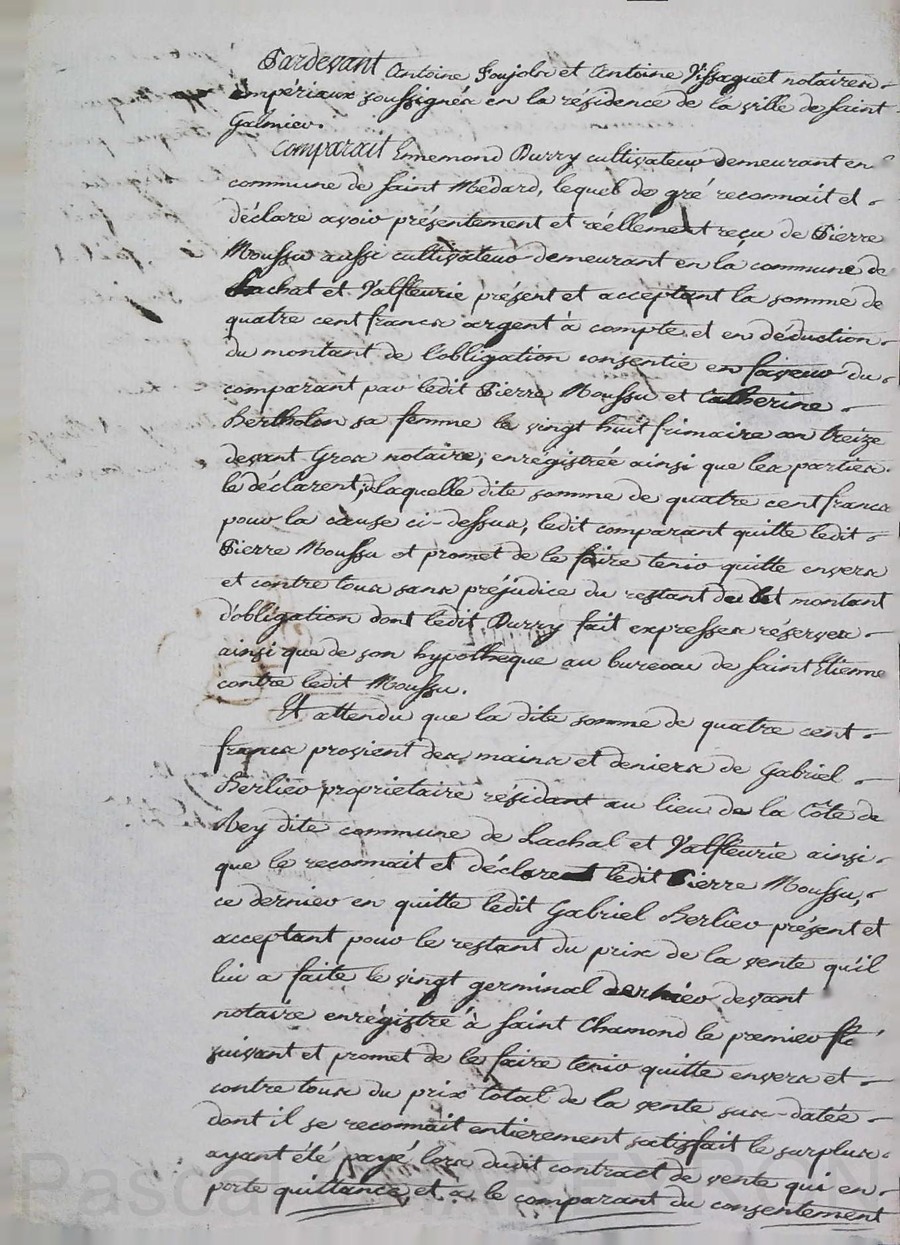 Pardevant Antoine Foujols et Antoine Vissaguet notaires
impériaux soussignés en la résidence de la ville de Saint
Galmier.
Comparait Ennemond Durry cultivateur demeurant en
commune de Saint Médard, lequel de gré reconnait et
déclare avoir présentement et réellement reçu de Pierre
Moussu aussi cultivateur demeurant en la commune de
Lachat et Valfleurie présent et acceptant la somme de
quatre cent francs argent à compte et en déduction
du montant de l'obligation consentie en faveur du
comparant par ledit Pierre Moussu et Catherine
Bertholon sa femme le vingt huit frimaire an treize
devant Gros notaire, enrégistrée ainsi que les parties
le déclarent, laquelle dite somme de quatre cent francs
pour la cause ci-dessus, ledit comparant quitte ledit
Pierre Moussu et promet de le faire tenir quitte envers
et contre tous sans préjudice du restant du montant
d'obligation dont ledit Durry fait expresses réserves
ainsi que de son hypotheque au bureau de Saint Etienne
contre ledit Moussu.
Et attendu que la dite somme de quatre cent
francs provient des mains et deniers de Gabriel
Berlier propriétaire résidant au lieu de la Côte de
Rey dite commune de Lachal et Valfleurie ainsi
que le reconnait et déclare ledit Pierre Moussu,
ce dernier en quitte ledit Gabriel Berlier présent et
acceptant pour le restant du prix de la vente qu'il
lui a faite le vingt germinal dernier devant
notaire enregistré à Saint Chamond le premier flo
suivant et promet de le faire tenir quitte envers et
contre tous du prix total de la vente sus-datée
dont il se reconnait entierement satisfait le surplus
ayant été payé lors dudit contract de vente qui en
porte quittance et a le comparant du consentement
Pascal CHAREYRON